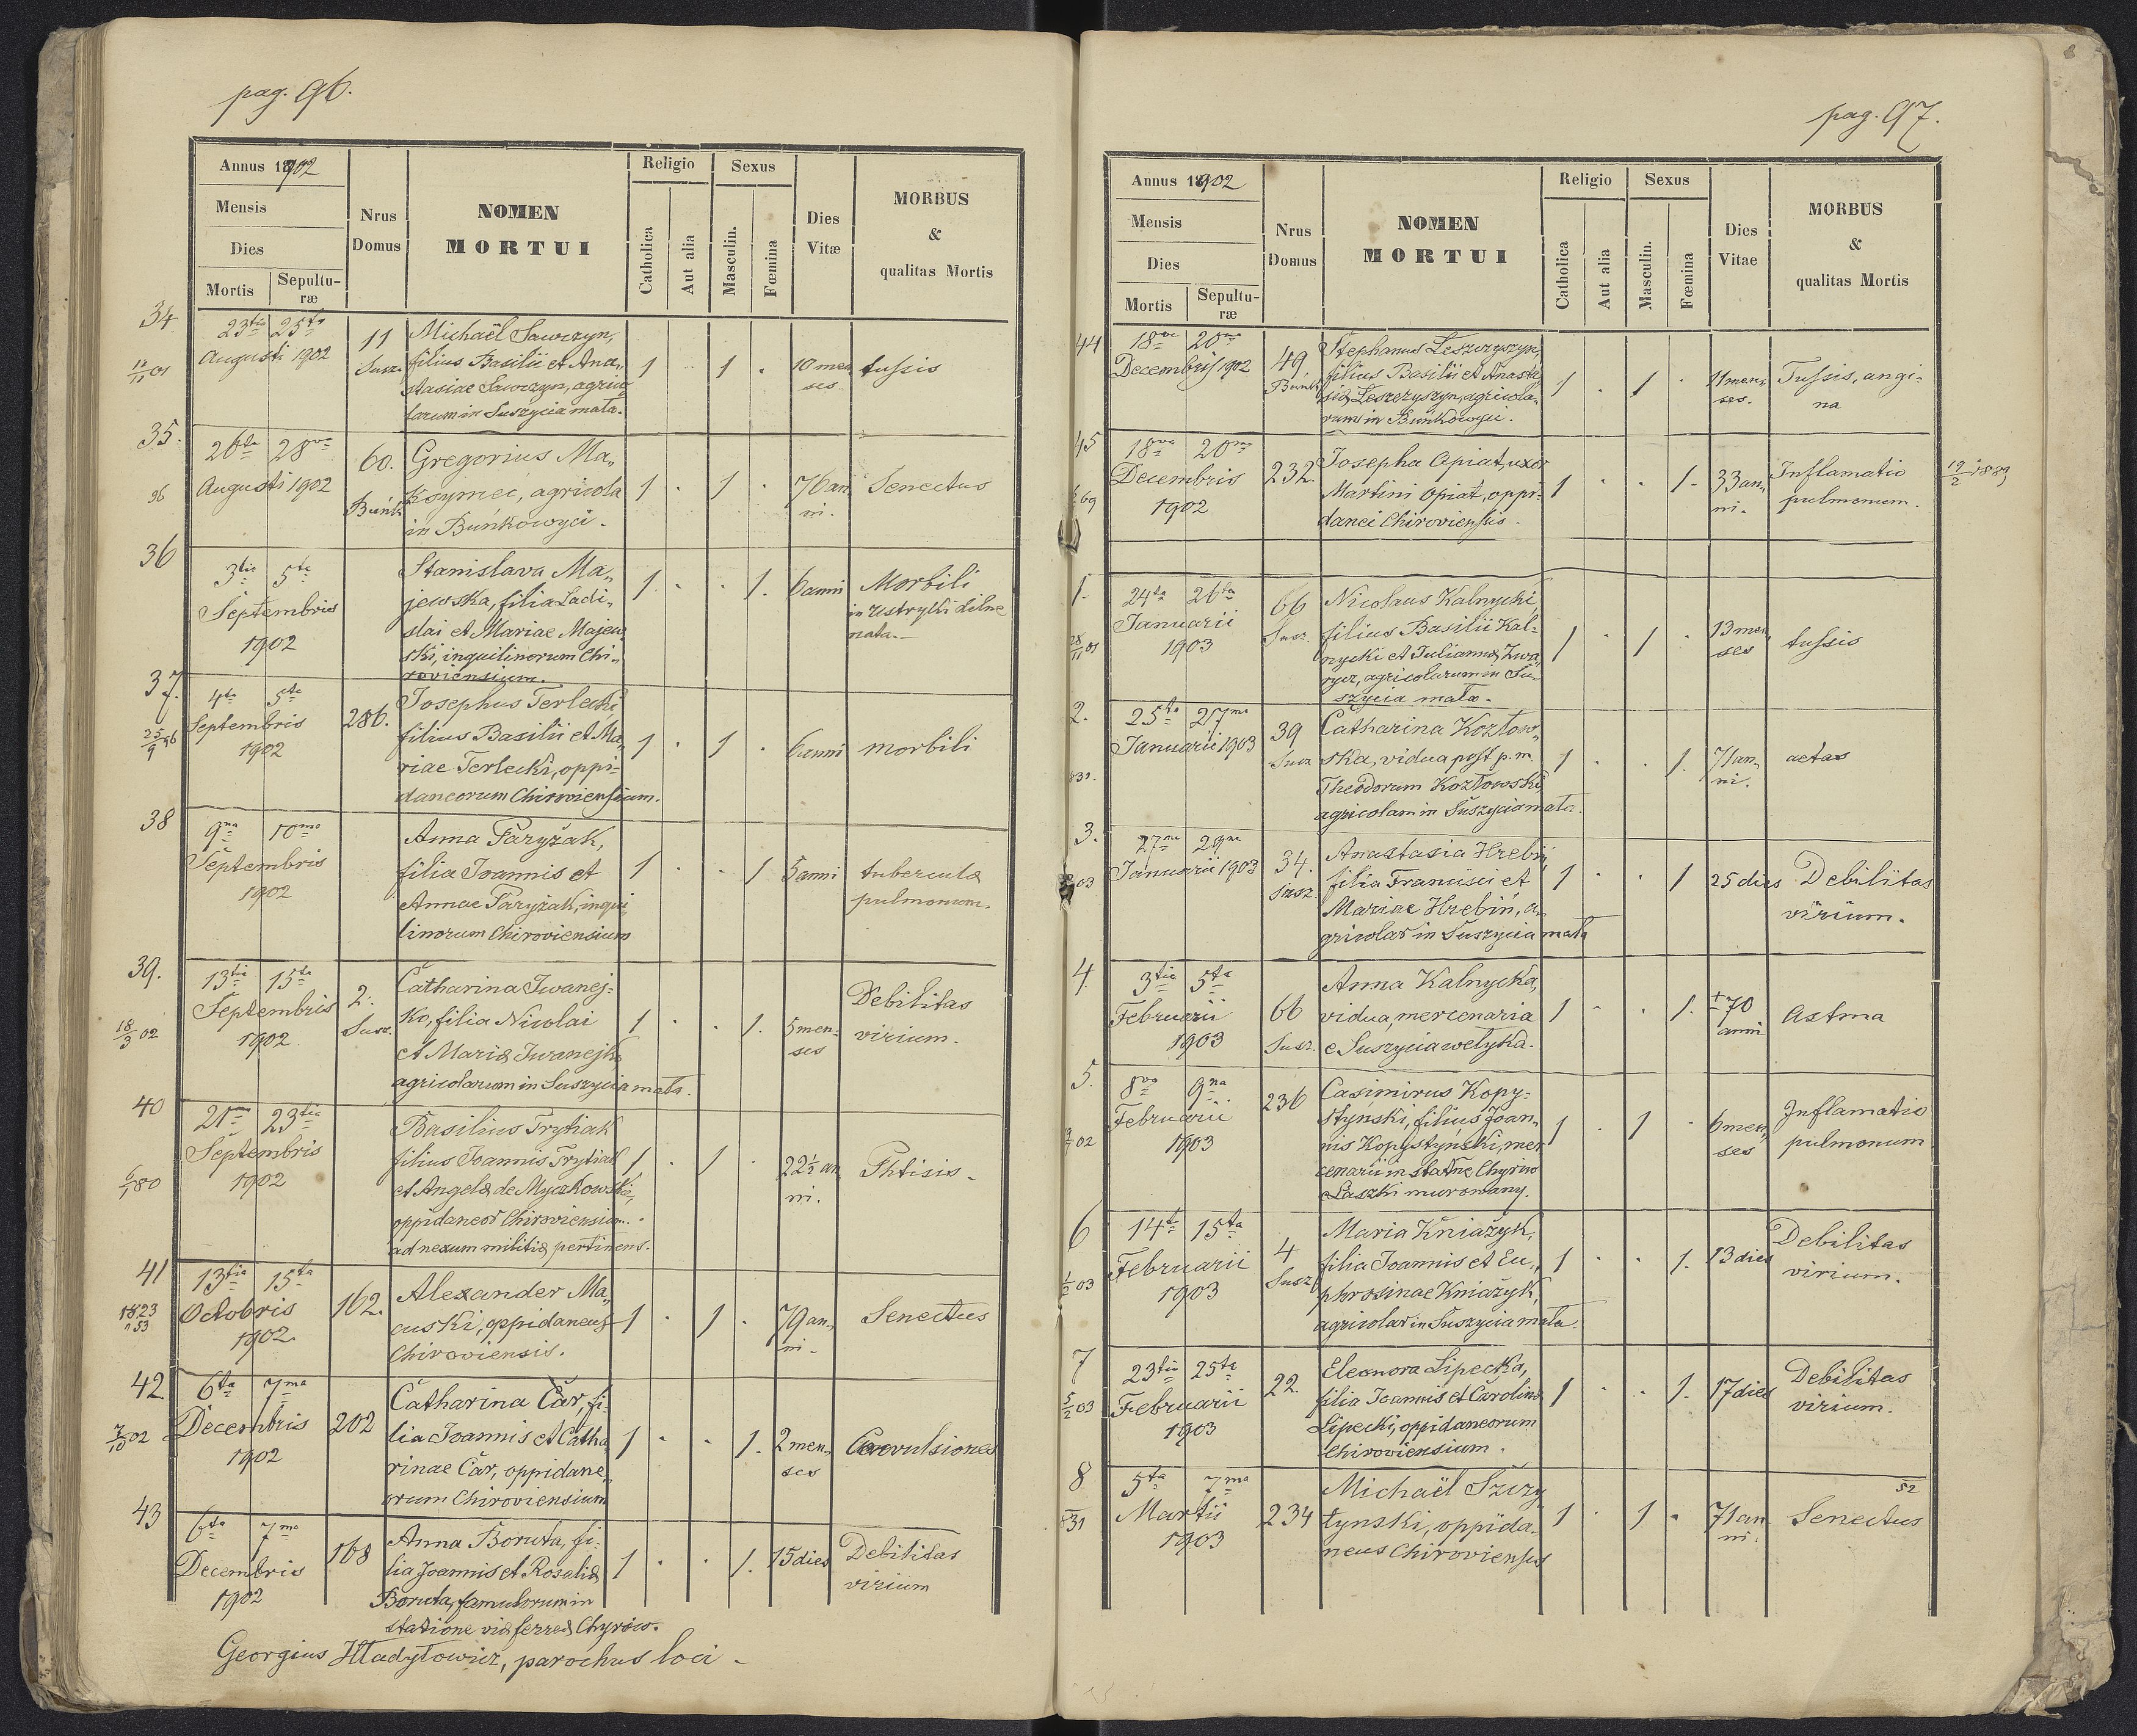 pag. 96.
Annus 1902
Mensis
Dies
Mortis
Sepultu-
ræ
Nrus
Domus
NOMEN
MORTUI
Religio
Catholica
Aut alia
Sexus
Masculin.
Fœmina
Dies
Vitæ
MORBUS
&
qualitas Mortis
34.
23tia 25ta
Augusti 1902
11
Susz.
Michaël Sawczyn,
filius Basilii et Ana„
stasiae Sawczyn, agrico„
larum in Suszycia mała.
1 1 .
10 men„
ses
tussis
35.
96
26ta 28va
Augusti 1902
60.
Buńk.
Gregorius Ma„
ksymec, agricola
in Buńkowyci.
1 . 1 .
76 an„
ni.
Senectus
36
3tia 5ta
Septembris
1902
Stanislava Ma„
jewska, filia Ladi„
slai et Mariae Majew„
ski, inquilinorum Chi„
roviensium.
1 . . 1.
6 anni
Morbili
in Ustryki dilne
nata.
37.
25/9 96
4ta 5ta
Septembris
1902
286.
Josephus Terlecki
filius Basilii et Ma„
riae Terlecki, oppi=
daneorum Chiroviensium.
1 . 1 .
6 anni
morbili
38
9na 10ma
Septembris
1902
Anna Paryżak,
filia Joannis et
Annae Paryżak, inqui„
linorum Chiroviensium
1 . . 1
5 anni
tuberculæ
pulmonum.
39.
18/3 02
13tia 15ta
Septembris
1902
2.
Susz.
Catharina Iwanej=
ko, filia Nicolai
et Mariæ Iwanejko,
agricolarum in Suszycia mała.
1 . . 1.
5 men=
ses
Debilitas
virium.
40
6/1 80
21ma 23tia
Septembris
1902
Basilius Trytiak
filius Joannis Trytiak
et Angelæ de Myczkowski,
oppidaneor Chiroviensium.
ad nexum militiæ pertinens.
1 . 1 .
22½ an
ni.
Phtisis.
41
13tia 15ta
Octobris
1902.
162.
Alexander Ma„
cuski, oppidaneus
Chiroviensis.
1 . 1 .
79 an„
ni.
Senectus
42
7/10 02
6ta 7ma
Decembris
1902
202
Catharina Càr, fi=
lia Joannis et Catha„
rinae Càr, oppidane„
orum Chiroviensium
1 . . 1.
2 men„
ses
Convulsiones
43
6ta 7ma
Decembris
1902
168
Anna Boruta, fi=
lia Joannis et Rosaliæ
Boruta, famulorum in
statione viæ ferreæ Chyrów.
1 . . 1.
15 dies
Debilitas
virium
Georgius Hładyłowicz, parochus loci
pag. 97.
Annus 1902
Mensis
Dies
Mortis
Sepultu-
ræ
Nrus
Domus
NOMEN
MORTUI
Religio
Catholica
Aut alia
Sexus
Masculin.
Fœmina
Dies
Vitae
MORBUS
&
qualitas Mortis
44
18va 20ma
Decembris 1902
49
Buńk.
Stephanus Leszczyszyn,
filius Basilii et Anasta
siæ Leszczyszyn, agricola„
rum in Buńkowyci.
1 . 1 .
11 men„
ses.
Tussis, angi=
na
45
18va 20ma
Decembris
1902
232.
Josepha Opiat, uxor
Martini Opiat, oppi=
danei Chiroviensis.
1 . . 1.
33 an„
ni.
Inflamatio
pulmonum.
1.
28/11 01
24ta 26ta
Januarii
1903
66
Susz.
Nicolaus Kalnycki,
filius Basilii Kal=
nycki et Juliannæ Zwa„
rycz, agricolarum in Su„
szycia mała.
1 . 1 .
13 men„
ses
tussis
2.
831.
25ta 27ma
Januarii 1903
39
Susz
Catharina Kozłow„
ska, vidua post p. m.
Theodorum Kozłowski,
agricolam in Suszycia mała.
1 . . 1.
71 an„
ni.
aetas
3.
03
27ma 29na
Januarii 1903
34.
Susz.
Anastasia Hrebiń,
filia Francisci et
Mariae Hrebiń, a„
gricolar in Suszycia mała
1 . . 1
25 dies
Debilitas
virium.
4.
3tia 5ta
Februarii
1903
66
Susz.
Anna Kalnycka,
vidua, mercenaria
e Suszycia wełyka.
1 . . 1.
±70
anni
Astma
5.
02
8va 9na
Februarii
1903
236
Casimirus Kopy=
styński, filius Joan„
nis Kopystyński, mer
cenarii in statne Chyrów
e Laszki murowany.
1 . 1 .
6 men„
ses
Inflamatio
pulmonum
6
1/2 03
14ta 15ta
Februarii
1903
4
Susz
Maria Kniażyk,
filia Joannis et Eu„
phrosinae Kniażyk,
agricolar in Suszycia mała.
1 . . 1.
13 dies
Debilitas
virium.
7
5/2 03
23tia 25ta
Februarii
1903
22.
Eleonora Lipecka,
filia Joannis et Carolinæ
Lipecki, oppidaneorum
Chiroviensium.
1 . . 1.
17 dies
Debilitas
virium.
8
831
5ta 7ma
Martii
1903
234
Michaël Szczy
tynski, oppida=
neus Chiroviensis
1 . 1 .
71 an
ni.
52
Senectus